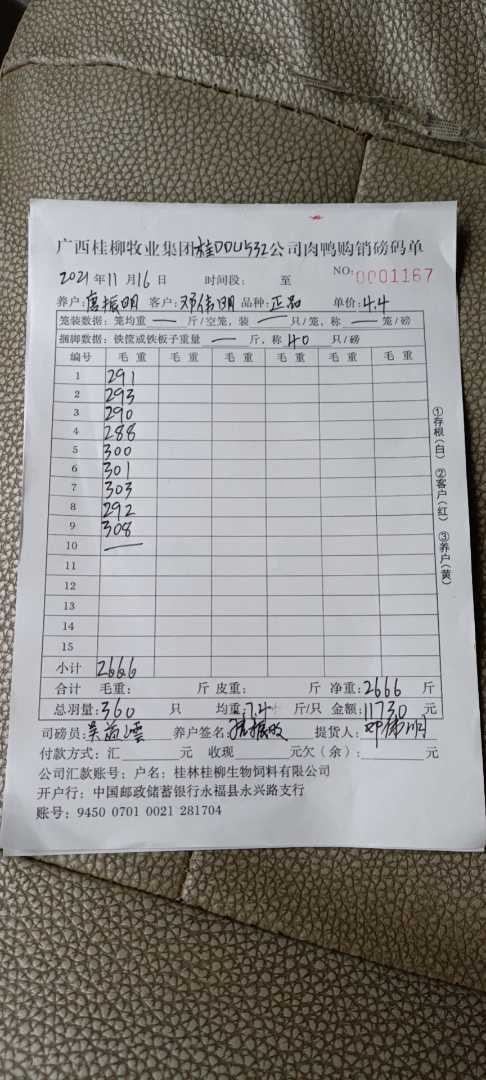 广西桂柳牧业集团桂DDU532公司肉鸭购销磅码单
2021年11月16日 时间段: 至 NO:0001167
养户:唐振明 客户:邓伟明 品种:正品 单价:4.4
笼装数据:笼均重 — 斤/空笼,装 — 只/笼,称 — 笼/磅
捆脚数据:铁筐或铁板子重量 — 斤,称 40 只/磅
编号 毛重 毛重 毛重 毛重 毛重 毛重
1 291
2 293
3 290
4 288
5 300
6 301
7 303
8 292
9 308
10 —
11
12
13
14
15
小计 2666
合计 毛重: 斤 皮重: 斤 净重:2666 斤
总羽量:360 只 均重:7.4 斤/只 金额:11730 元
司磅员: 养户签名: 提货人:邓伟明
付款方式:汇 元 收现 元欠(余): 元
公司汇款账号:户名:桂林桂柳生物饲料有限公司
开户行:中国邮政储蓄银行永福县永兴路支行
账号:9450 0701 0021 281704
①存根(白) ②客户(红) ③养户(黄)